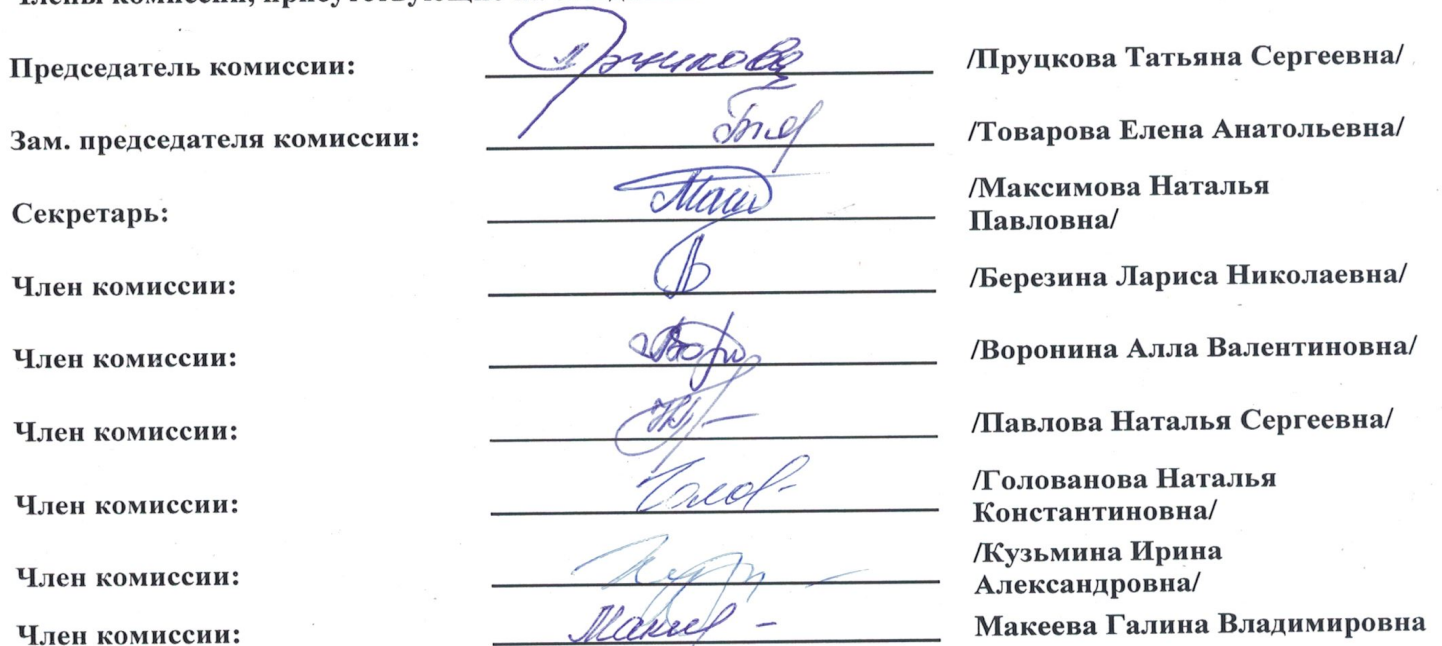 Председатель комиссии: /Пруцкова Татьяна Сергеевна/
Зам. председателя комиссии: /Товарова Елена Анатольевна/
Секретарь: /Максимова Наталья
Павловна/
Член комиссии: /Березина Лариса Николаевна/
Член комиссии: /Воронина Алла Валентиновна/
Член комиссии: /Павлова Наталья Сергеевна/
Член комиссии: /Голованова Наталья
Константиновна/
Член комиссии: /Кузьмина Ирина
Александровна/
Член комиссии: Макеева Галина Владимировна